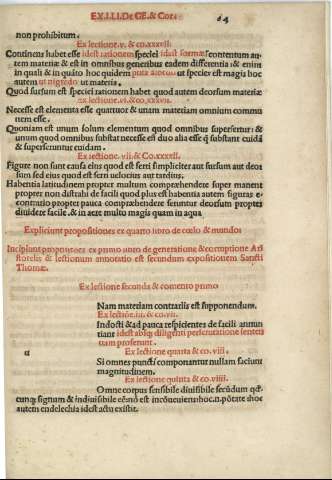 EX.I.LI.De GE.& Cor:
non prohibitum.
Ex lectione.v. & co.xxxvii.
Continens habet esse idest rationem speciei idest formæ contentum au-
tem materiæ & est in omnibus generibus eadem differentia: & enim
in quali & in quāto hoc quidem puta albedo ut species est magis hoc
autem ut nigredo ut materia.
Quod sursum est speciei rationem habet quod autem deorsum materiæ
ex lectione vi. & co.xxxvii.
Necesse est elementa esse quattuor & unam materiam omnium commu
nem esse.
Quoniam est unum solum elementum quod omnibus superfertur: &
unum quod omnibus substat necesse est duo alia esse q̃ substant cuidā
& superferuntur cuidam.
Ex lectione. vii. & Co.xxxxii.
Figuræ non sunt causa eius quod est ferri simpliciter aut sursum aut deor
sum sed eius quod est ferri uelocius aut tardius.
Habentia latitudinem propter multum comprehendere super manent
propter non distrahi de facili quod plus est habentia autem figuras e-
contrario propter pauca comprehendere feruntur deorsum propter
diuidere facile .& in aere multo magis quam in aqua
Expliciunt propositiones ex quarto libro de cœlo & mundo:
Incipiunt propositiones ex primo libro de generatione & corruptione Ari
stotelis & lectionum annotatio est secundum expositionem Sancti
Thomæ.
Ex lectione secunda & comento primo
Nam materiam contrariis est supponendum.
Ex lectiõe.iii. & co.vii.
Indocti & ad pauca respicientes de facili annun
tiant idest absq; diligenti perscrutatione senten
tiam proferunt.
Ex lectione quarta & co. viii.
Si omnes puncti componantur nullam faciunt
magnitudinem.
Ex lectione quinta & co.viiii.
Omne corpus sensibile diuisibile secũdum qđ-
cunq; signum & indiuisibile
autem endelechia idest actu existit.